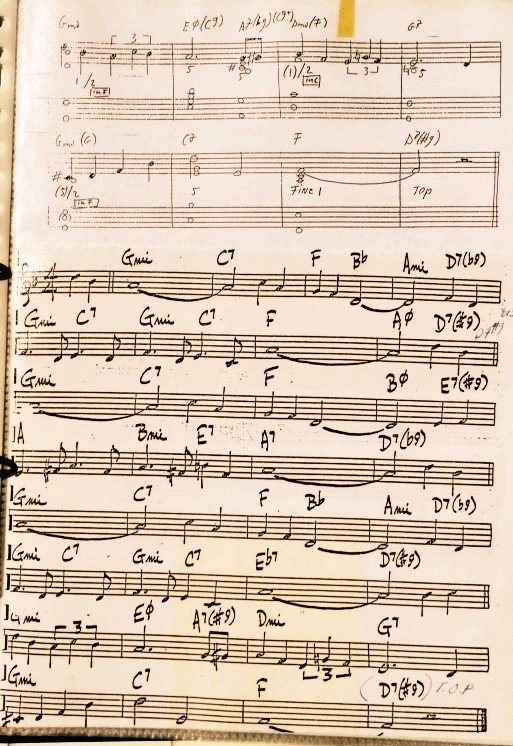 Gmi 3 EØ(C9) A7(b9)(C9+) Dmi(7) 3 G7
1/2 in F 5 5 (1)/2 in C 5
Gmi (G) C7 F D7(#9)
(5)/2 in F 5 Fine 1 Top
(8)
4 4 Gmi C7 F Bb Ami D7(b9)
Gmi C7 Gmi C7 F AØ D7(#9)
Gmi C7 F BØ E7(#9)
A Bmi E7 A7 D7(b9)
Gmi C7 F Bb Ami D7(b9)
Gmi C7 Gmi C7 Eb7 D7(#9)
Gmi 3 EØ A7(#9) Dmi 3 G7
Gmi C7 F (D7(#9)) T.O.P